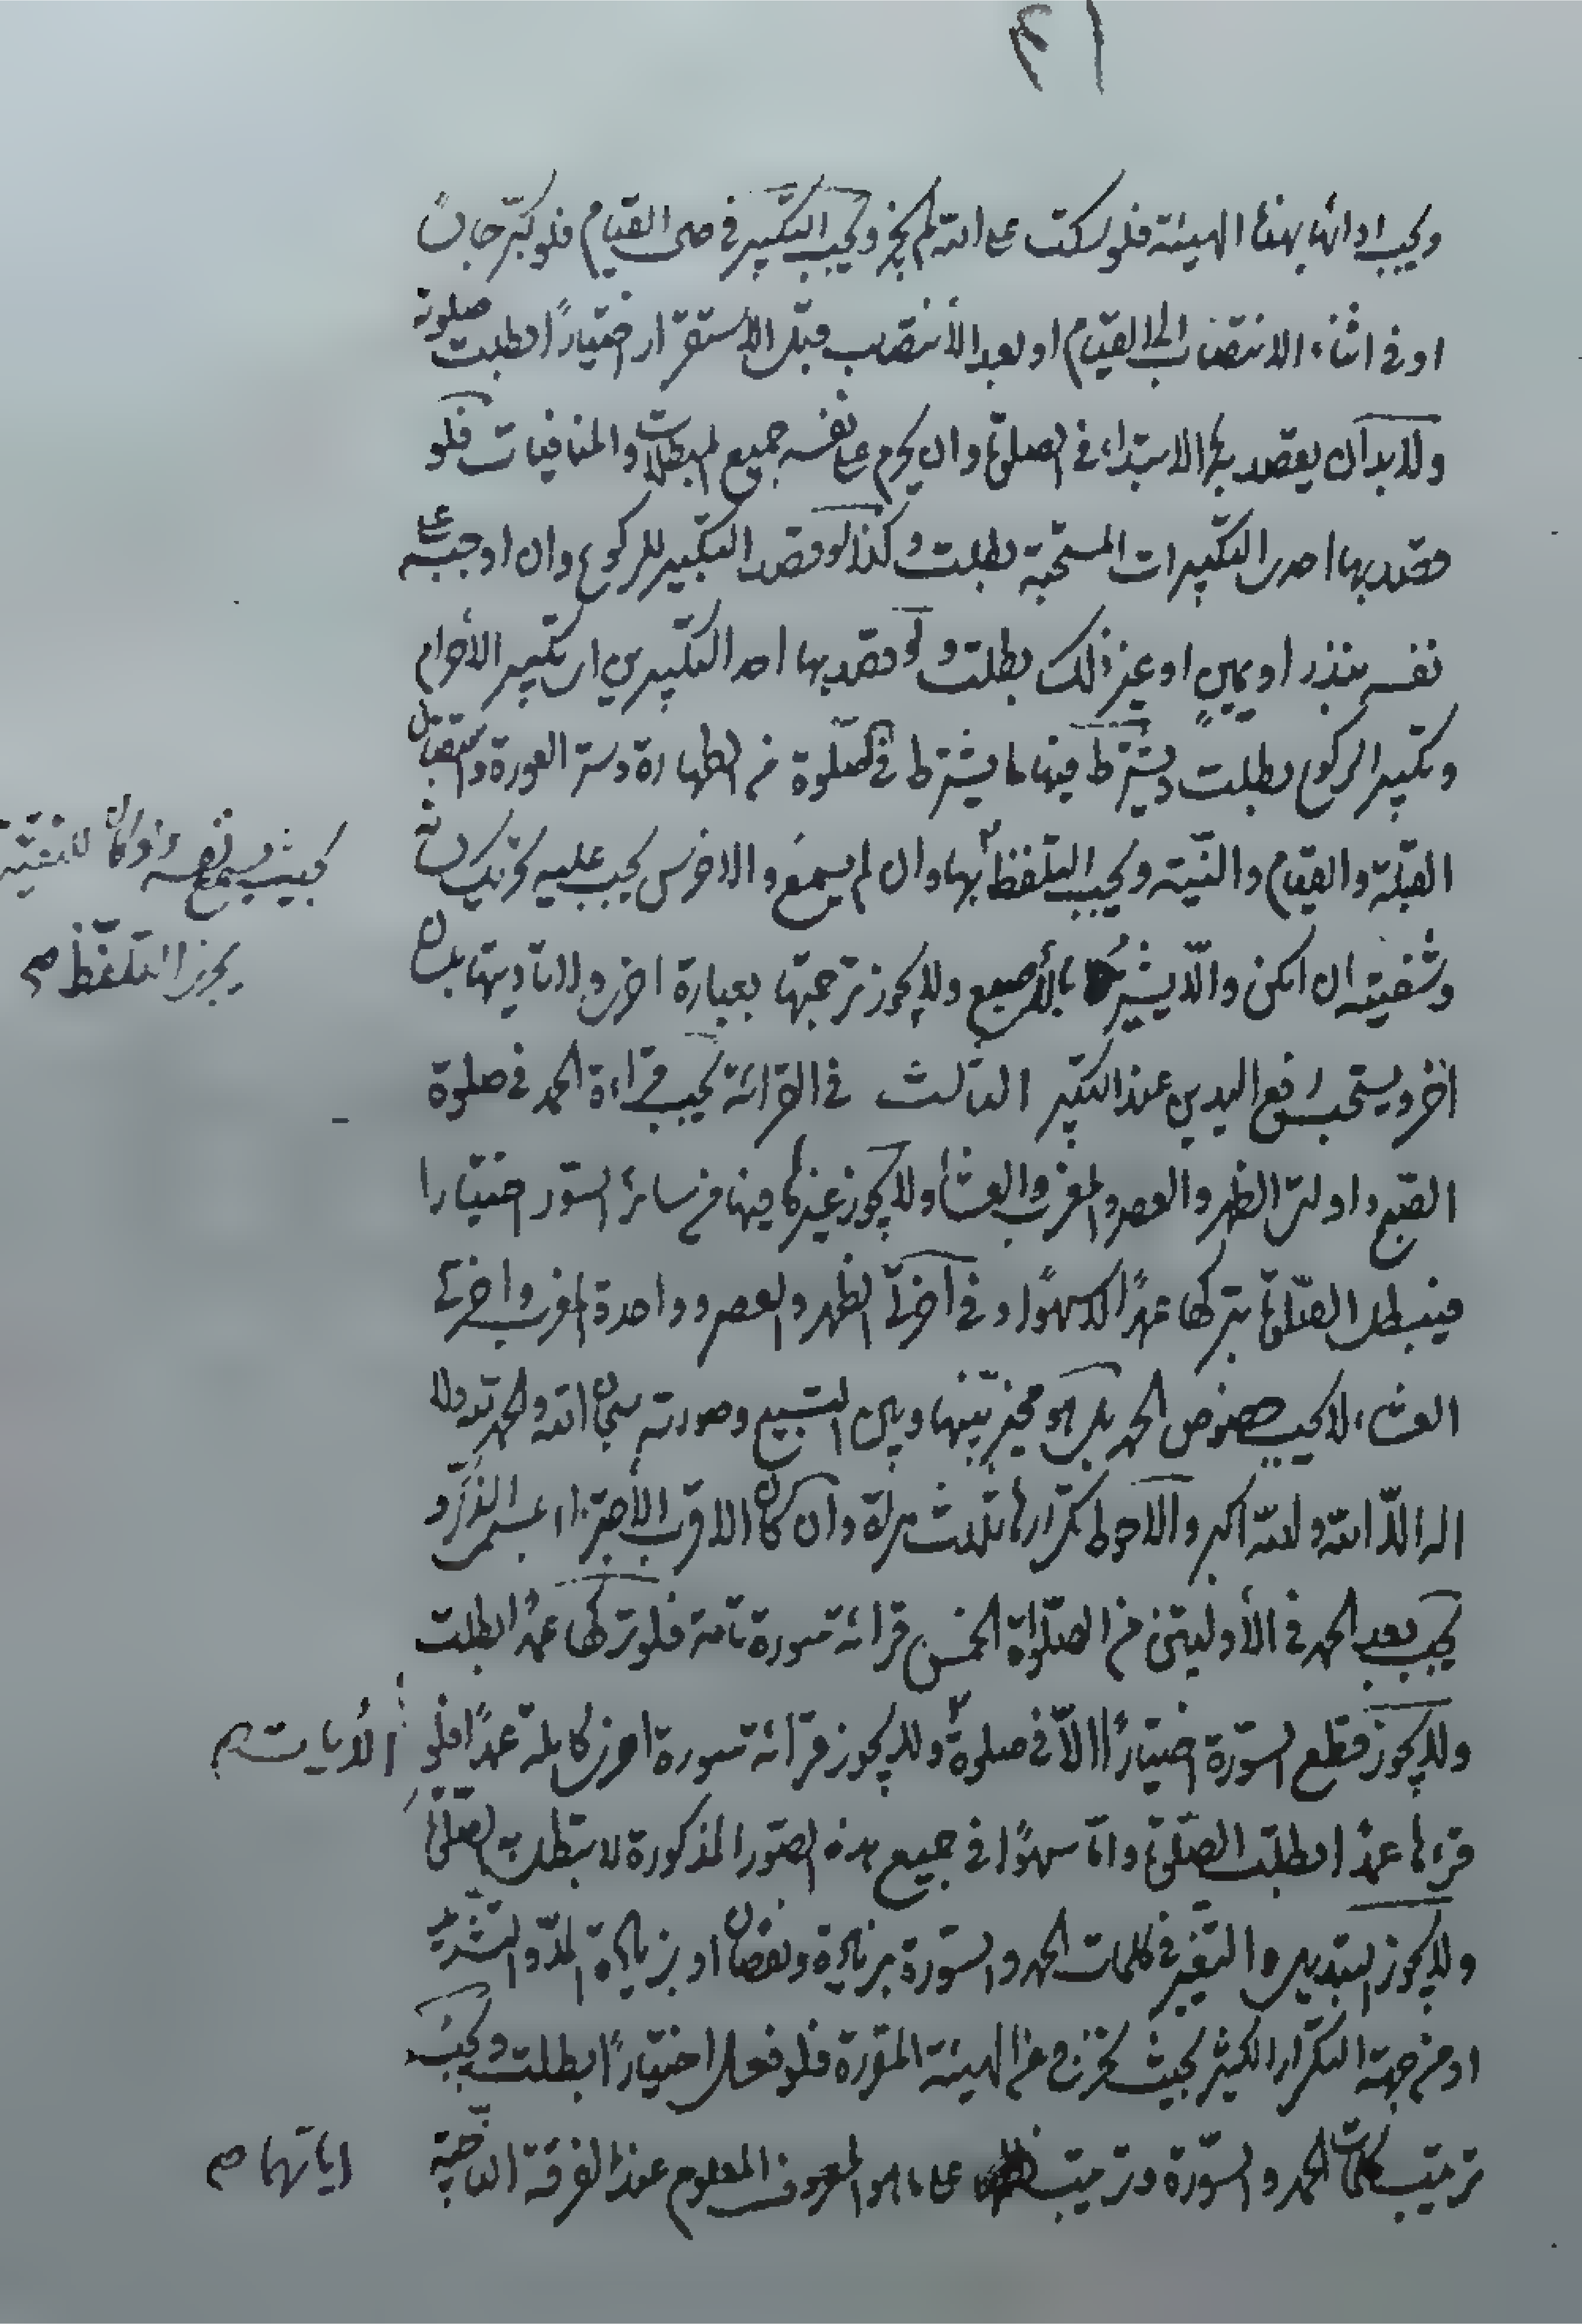 ٤١
ويجب ادائها بهذه الهيئة فلو سكت على الله لم يجز ويجب التكبير في حال القيام فلو كبّر جالسًا
او في اثناء الانتصاب الى القيام او بعد الأنتصاب قبل الأستقرار اختيارًا بطلت صلوته
ولابد ان يقصد بها الابتداء في الصلوة وان يحرم على نفسه جميع المبطلات والمنافيات فلو
قصد بها احدى التكبيرات المستحبة بطلت وكذا لو قصد التكبير للركوع وان اوجبه على
نفسه بنذر او يمين او غير ذلك بطلت ولو قصد بها احد التكبيرين اى تكبير الأحرام
وتكبير الركوع بطلت ويشترط فيها ما يشترط في الصّلوة من الطهارة وستر العورة واستقبال
القبلة والقيام والنّية ويجب التلفظ بها وان لم يسمع والاخرس يجب عليه تحريك لسانه
بحيث يسمع نفسه ولو كان للتقيّة
يجوز التلفّظ صح
وشفتيه ان امكن والّا يشير بالأصبع ولا يجوز ترجمتها بعبارة اخرى ولا تاديتها بلسان
اخر ويستحب رفع اليدين عند التكبير الثالث في القرائة يجب قراءة الحمد في صلوة
الصّبح واولتى الظهر والعصر والمغرب والعشاء ولا يجوز غيرها فيها من سائر السّور اختيارا
فيبطل الصّلوة بتركها عمدًا لا سهوًا و في اخرتى الظهر والعصر وواحدة المغرب واخرتى
العشاء لا يجب خصوص الحمد بل هو مخيّر بينها وبين التسبيح وصورته سبحان الله والحمد لله ولا
اله الّا الله والله اكبر والاحوط تكرارها ثلاث مرّة وان كان الاقرب الأجتزاء بمسمى الذكر و
يجب بعد الحمد في الأوليتين من الصّلواة الخمس قرائة سورة تامة فلو تركها عمدًا بطلت
ولا يجوز قطع السّورة اختيارًا الّا في صلوة ولا يجوز قرائة سورة اخرى كاملة عمدًا فلو
الأيات صح
قرءها عمدًا بطلت الصّلوة وامّا سهوًا في جميع هذه الصّور المذكورة لا تبطل الصلوة
ولا يجوز التبديل والتّغير في كلمات الحمد والسّورة بزيادة ونقصان او بزيادة المدّ والتشديد
او من جهة التكرار الكثير بحيث يخرج من الهيئة المقررة فلو فعل اختيارًا بطلت ويجب
ترتيب كلمات الحمد والسّورة وترتيب على ما هو المعروف المعلوم عند الفرقة الناجية
اياتهما صح